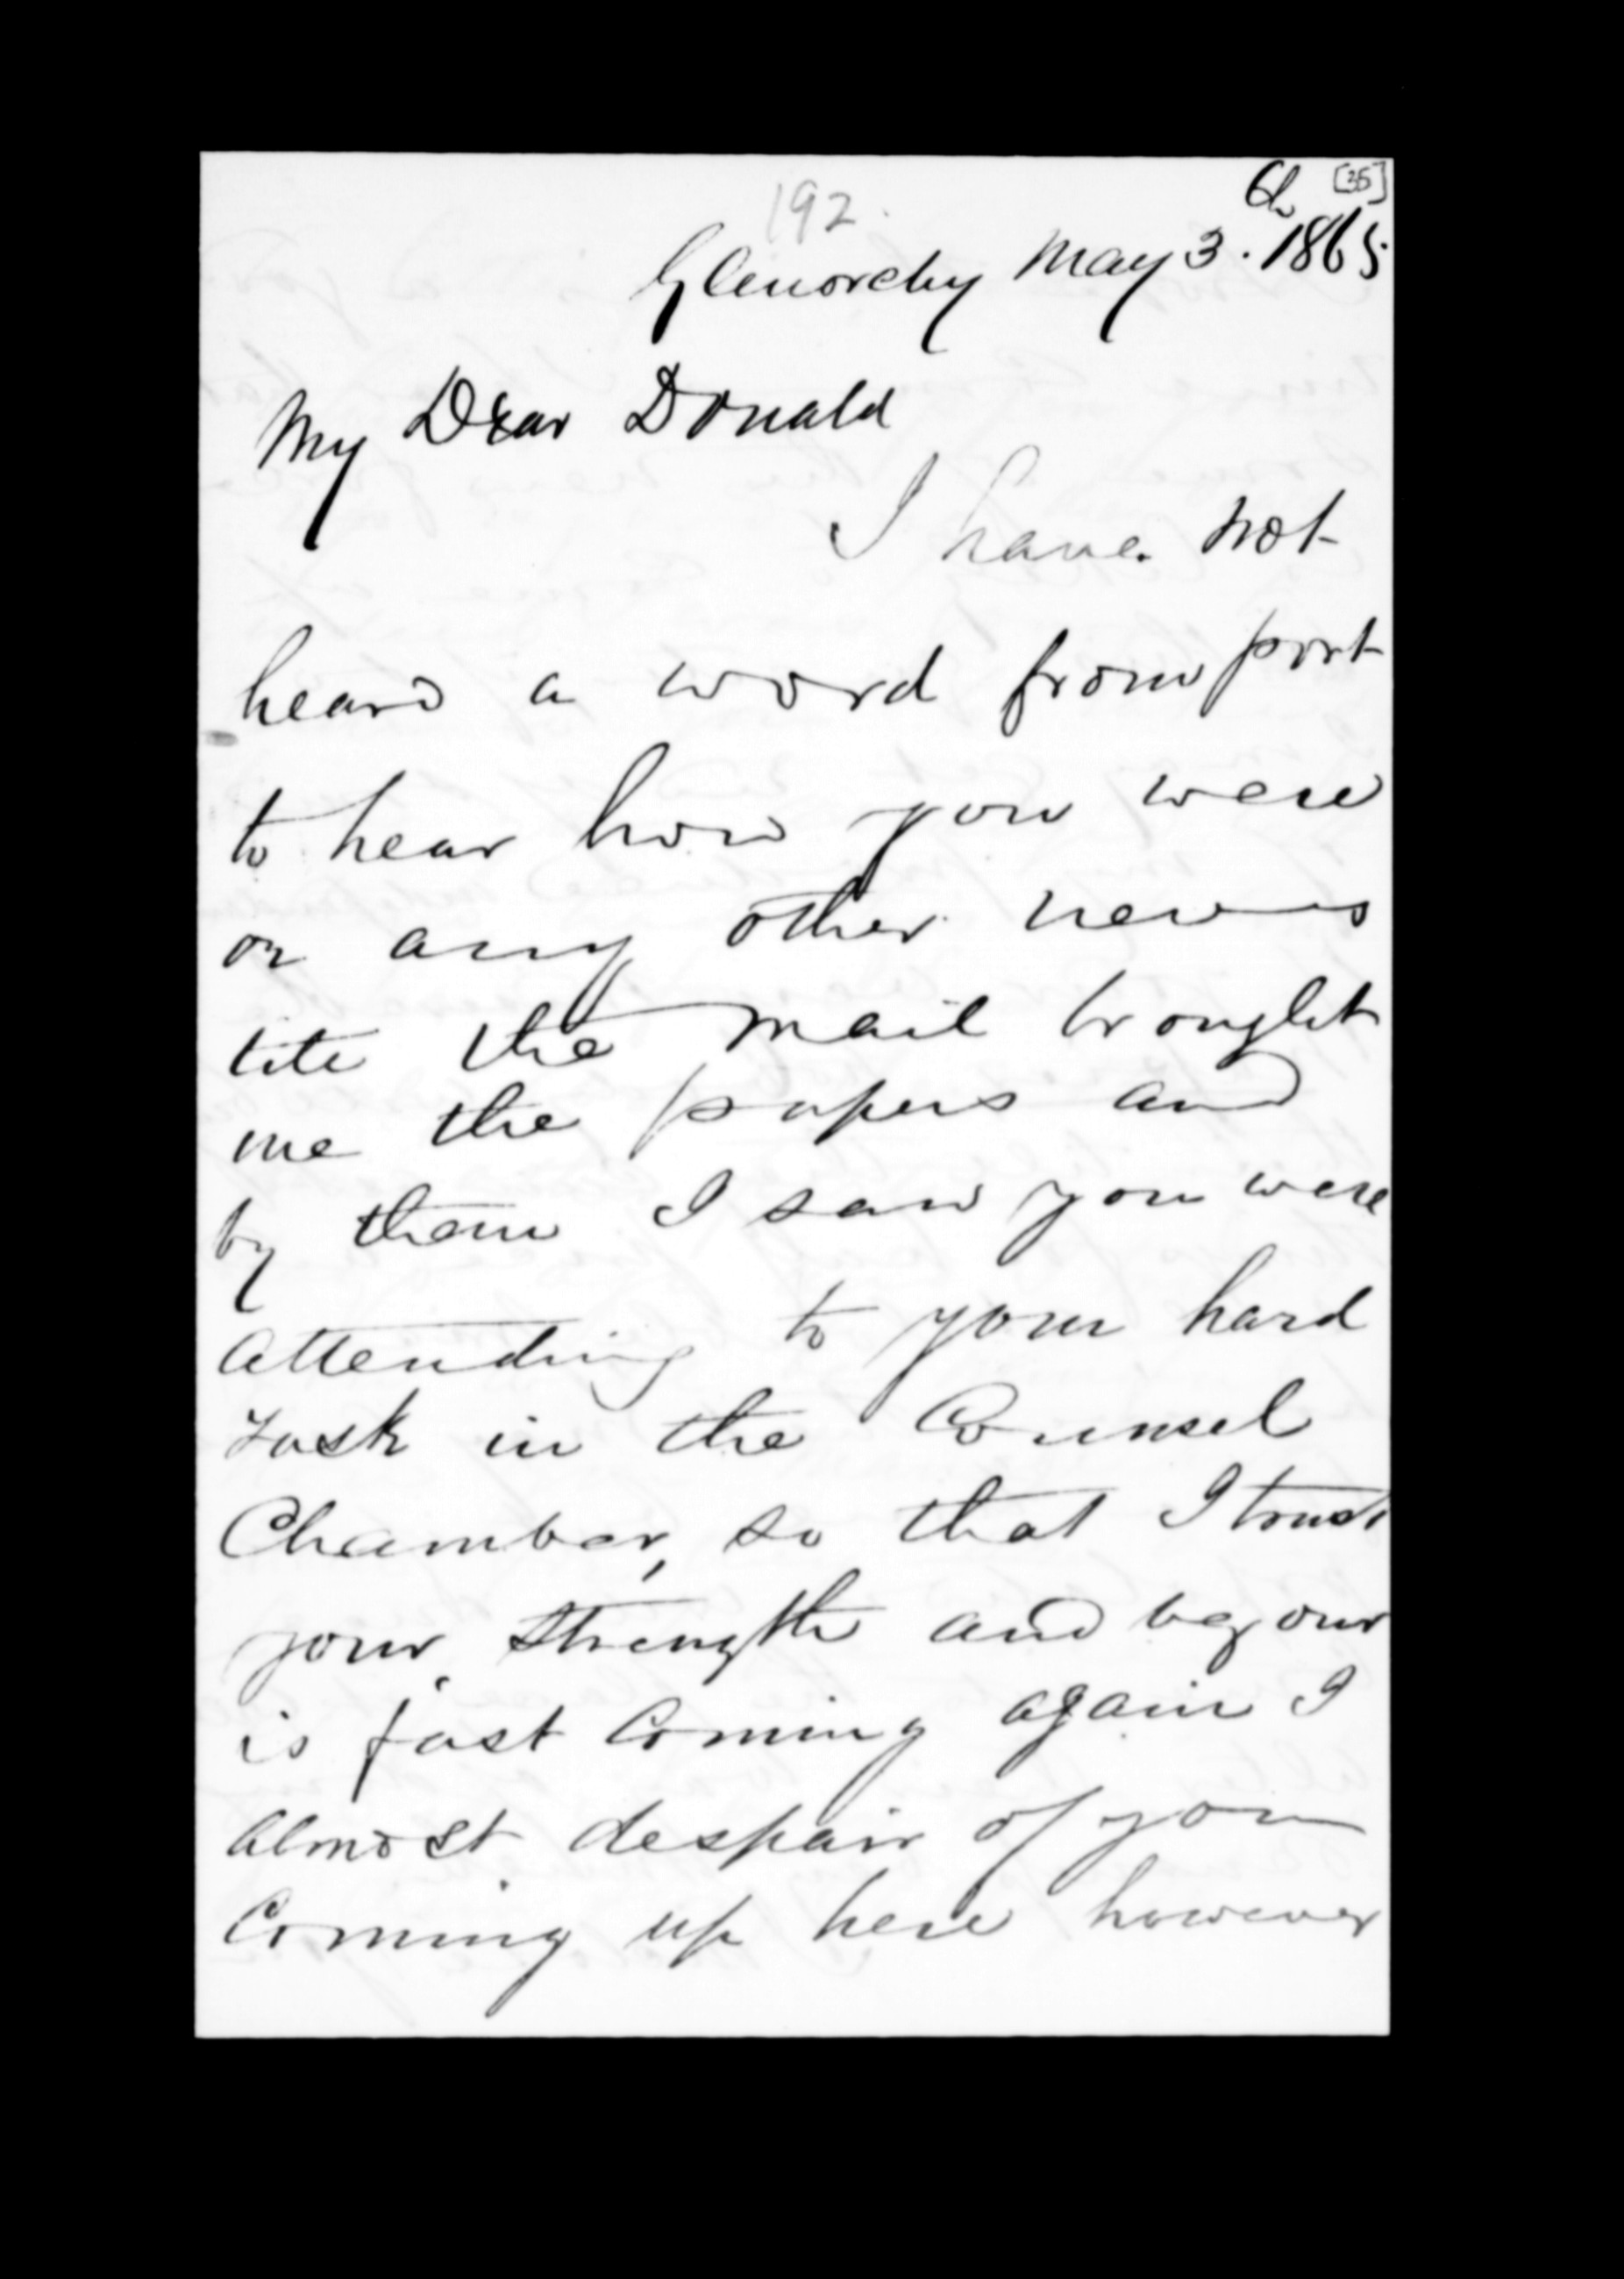 [35]
192.
Glenorchy May 3. 1865.
My Dear Donald
I have not
heard a word from port
to hear how you were
or any other news
till the mail brought
me the papers and
by them I saw you were
attending to your hard
task in the Counsel
Chamber, so that I trust
your strength and vegour
is fast coming again I
almost despair of you
coming up here however